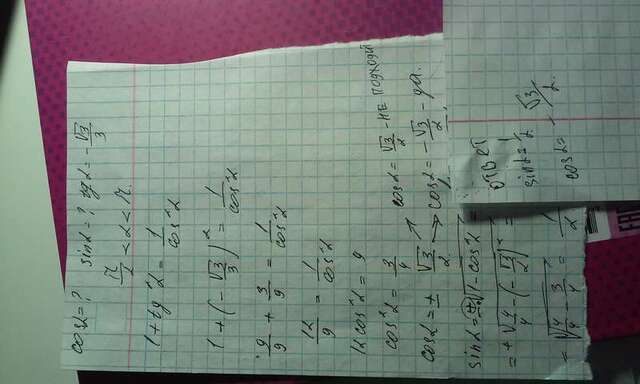 cosα=? sinα=? tgα=-√3/3
π/2 < α < π
1+tg²α = 1/cos²α
1+(-√3/3)² = 1/cos²α
9/9 + 3/9 = 1/cos²α
12/9 = 1/cos²α
12cos²α = 9
cos²α = 3/4
cosα = ± √3/2 ↗ cosα = √3/2 - НЕ ПОДХОДИ
→ cosα = -√3/2 - да.
sinα = ±√1-cos²α =
=+√4/4-(-√3/2)² =
=√4/4-3/4 = 1/2
ОТВЕТ
sinα = 1/2
cosα = -√3/2